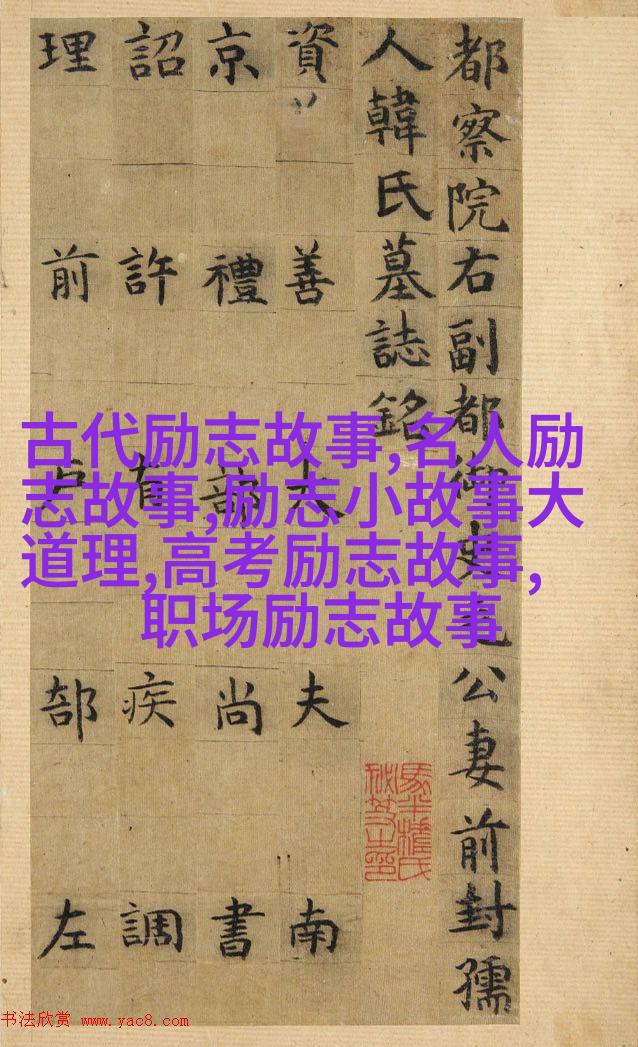 都察院右副都御史毛公妻前封孺
人韓氏墓誌銘
資善大夫南
京禮部尚書
詔許有疾調
理前户部左
古代励志故事,名人励
志故事,励志小故事大
道理,高考励志故事,
职场励志故事
书法欣赏 www.yac8.com